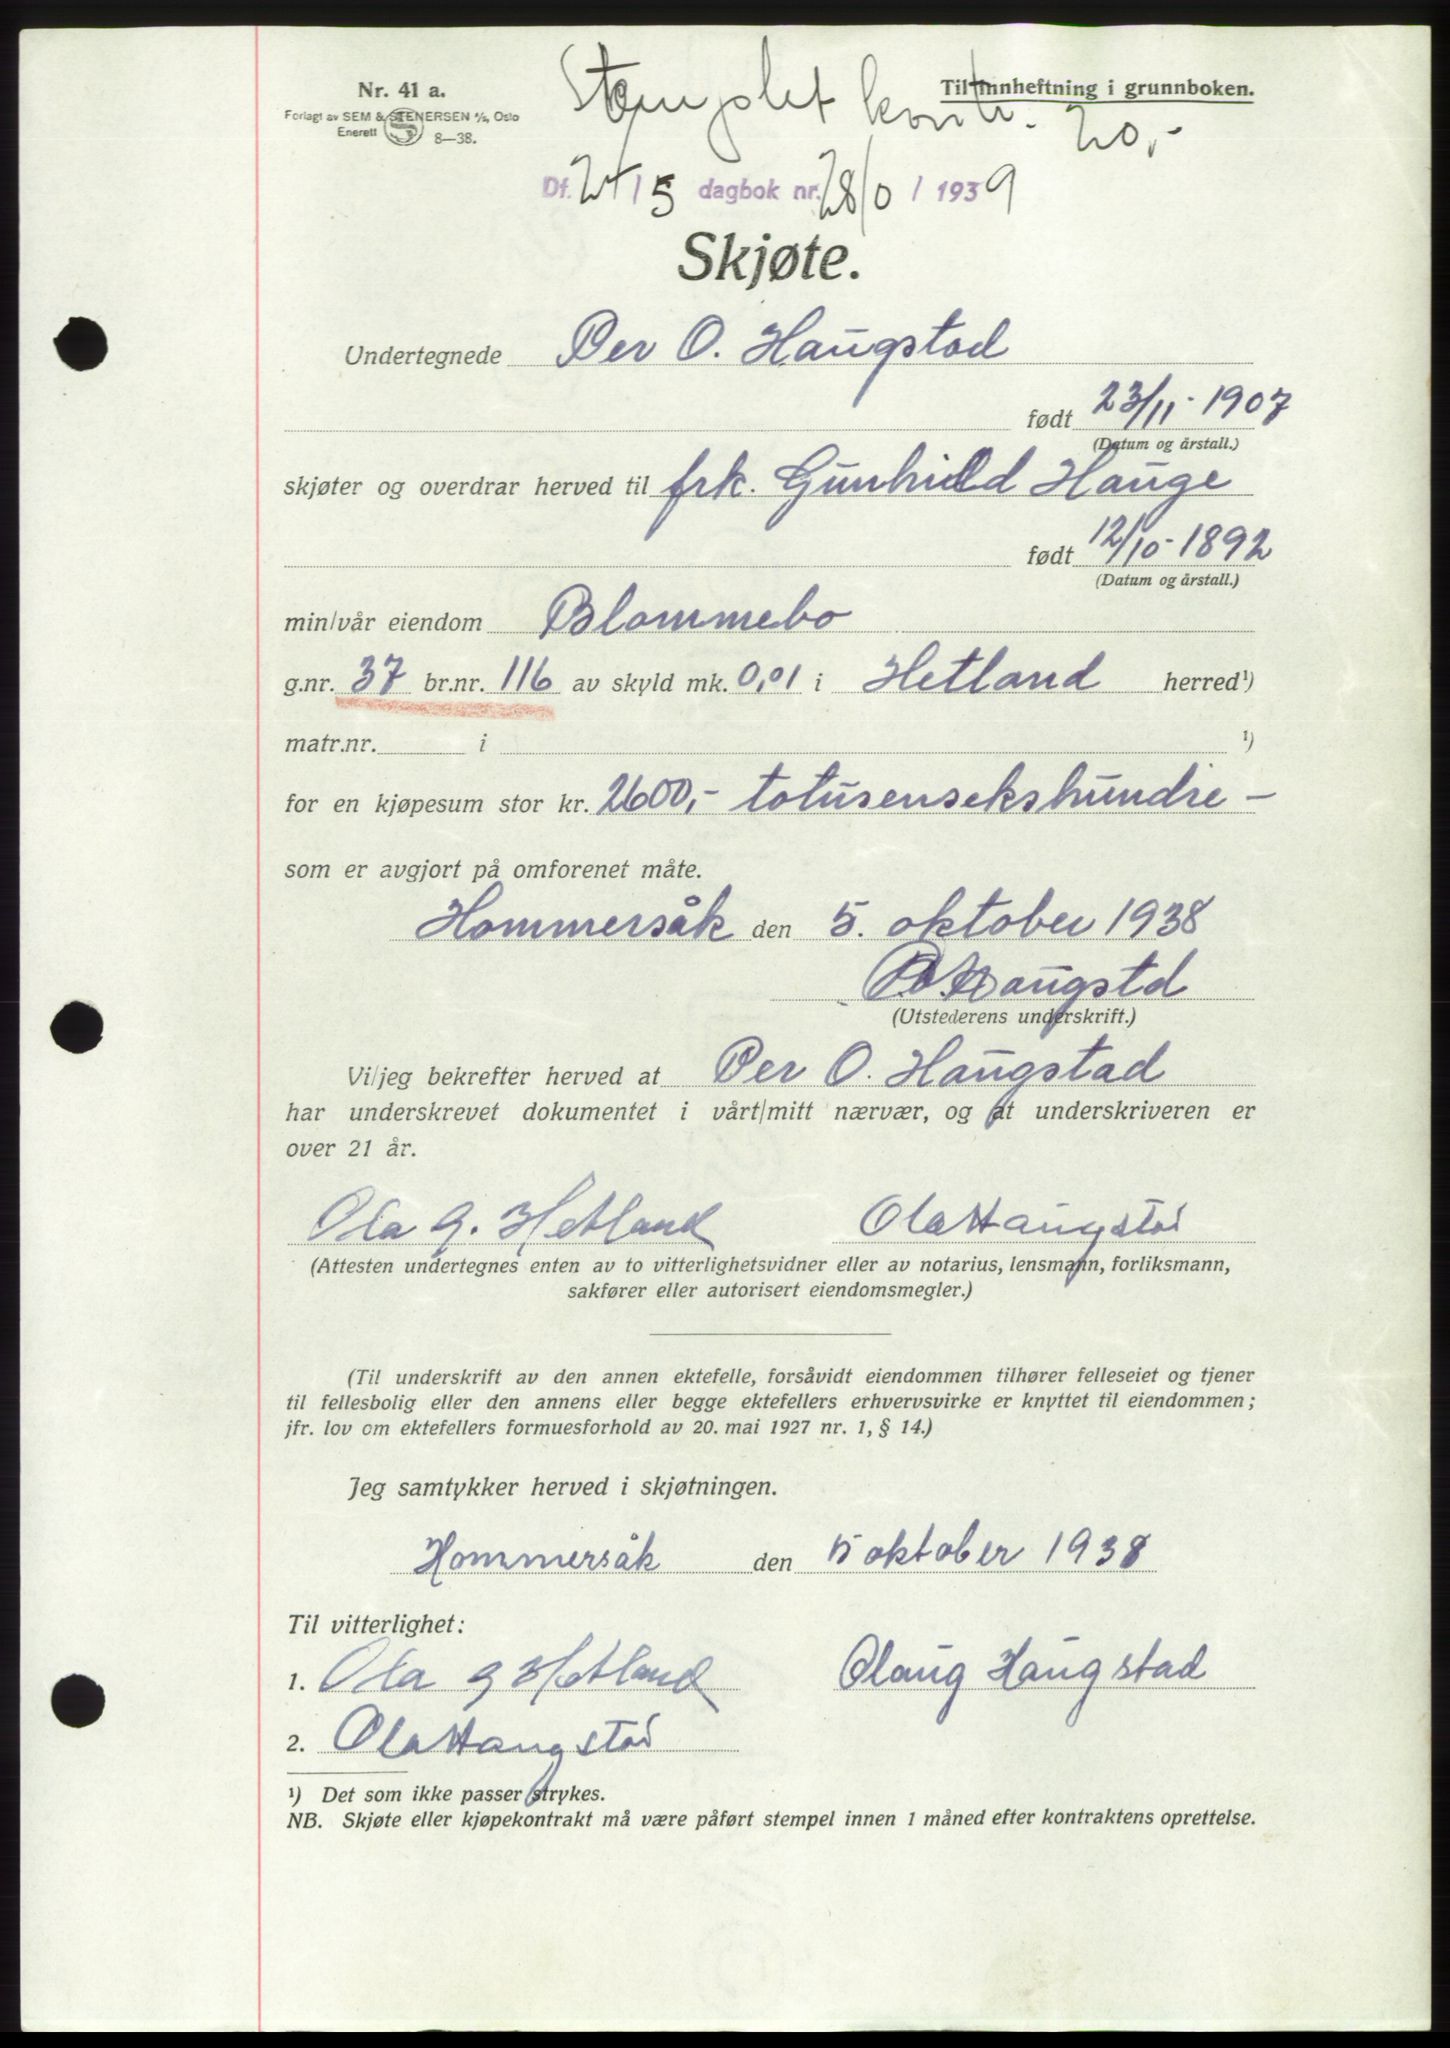 Nr. 41 a.
Forlagt av SEM & STENERSEN A/S, Oslo
Enerett 8—38.
Stemplet kontr. 20,-
Til innheftning i grunnboken.
Df. 24/5 dagbok nr. 2810/1939
Skjøte.
Undertegnede Per O. Haugstad
født 23/11-1907
(Datum og årstall.)
skjøter og overdrar herved til frk. Gunhild Hauge
født 12/10-1892
(Datum og årstall.)
min/vår eiendom Blommebo
g.nr. 37 br.nr. 116 av skyld mk. 0,01 i Hetland herred¹)
matr.nr. i ¹)
for en kjøpesum stor kr. 2600,- totusensekshundre -
som er avgjort på omforenet måte.
Hommersåk den 5. oktober 1938
P. O. Haugstd
(Utstederens underskrift.)
Vi/jeg bekrefter herved at Per O. Haugstad
har underskrevet dokumentet i vårt/mitt nærvær, og at underskriveren er
over 21 år.
Ola G. Hetland Ola Haugstad
(Attesten undertegnes enten av to vitterlighetsvidner eller av notarius, lensmann, forliksmann,
sakfører eller autorisert eiendomsmegler.)
(Til underskrift av den annen ektefelle, forsåvidt eiendommen tilhører felleseiet og tjener
til fellesbolig eller den annens eller begge ektefellers erhvervsvirke er knyttet til eiendommen;
jfr. lov om ektefellers formuesforhold av 20. mai 1927 nr. 1, § 14.)
Jeg samtykker herved i skjøtningen.
Hommersåk den 5 oktober 1938
Til vitterlighet:
1. Ola G Hetland Olaug Haugstad
2. Ola Haugstad
¹) Det som ikke passer strykes.
NB. Skjøte eller kjøpekontrakt må være påført stempel innen 1 måned efter kontraktens oprettelse.